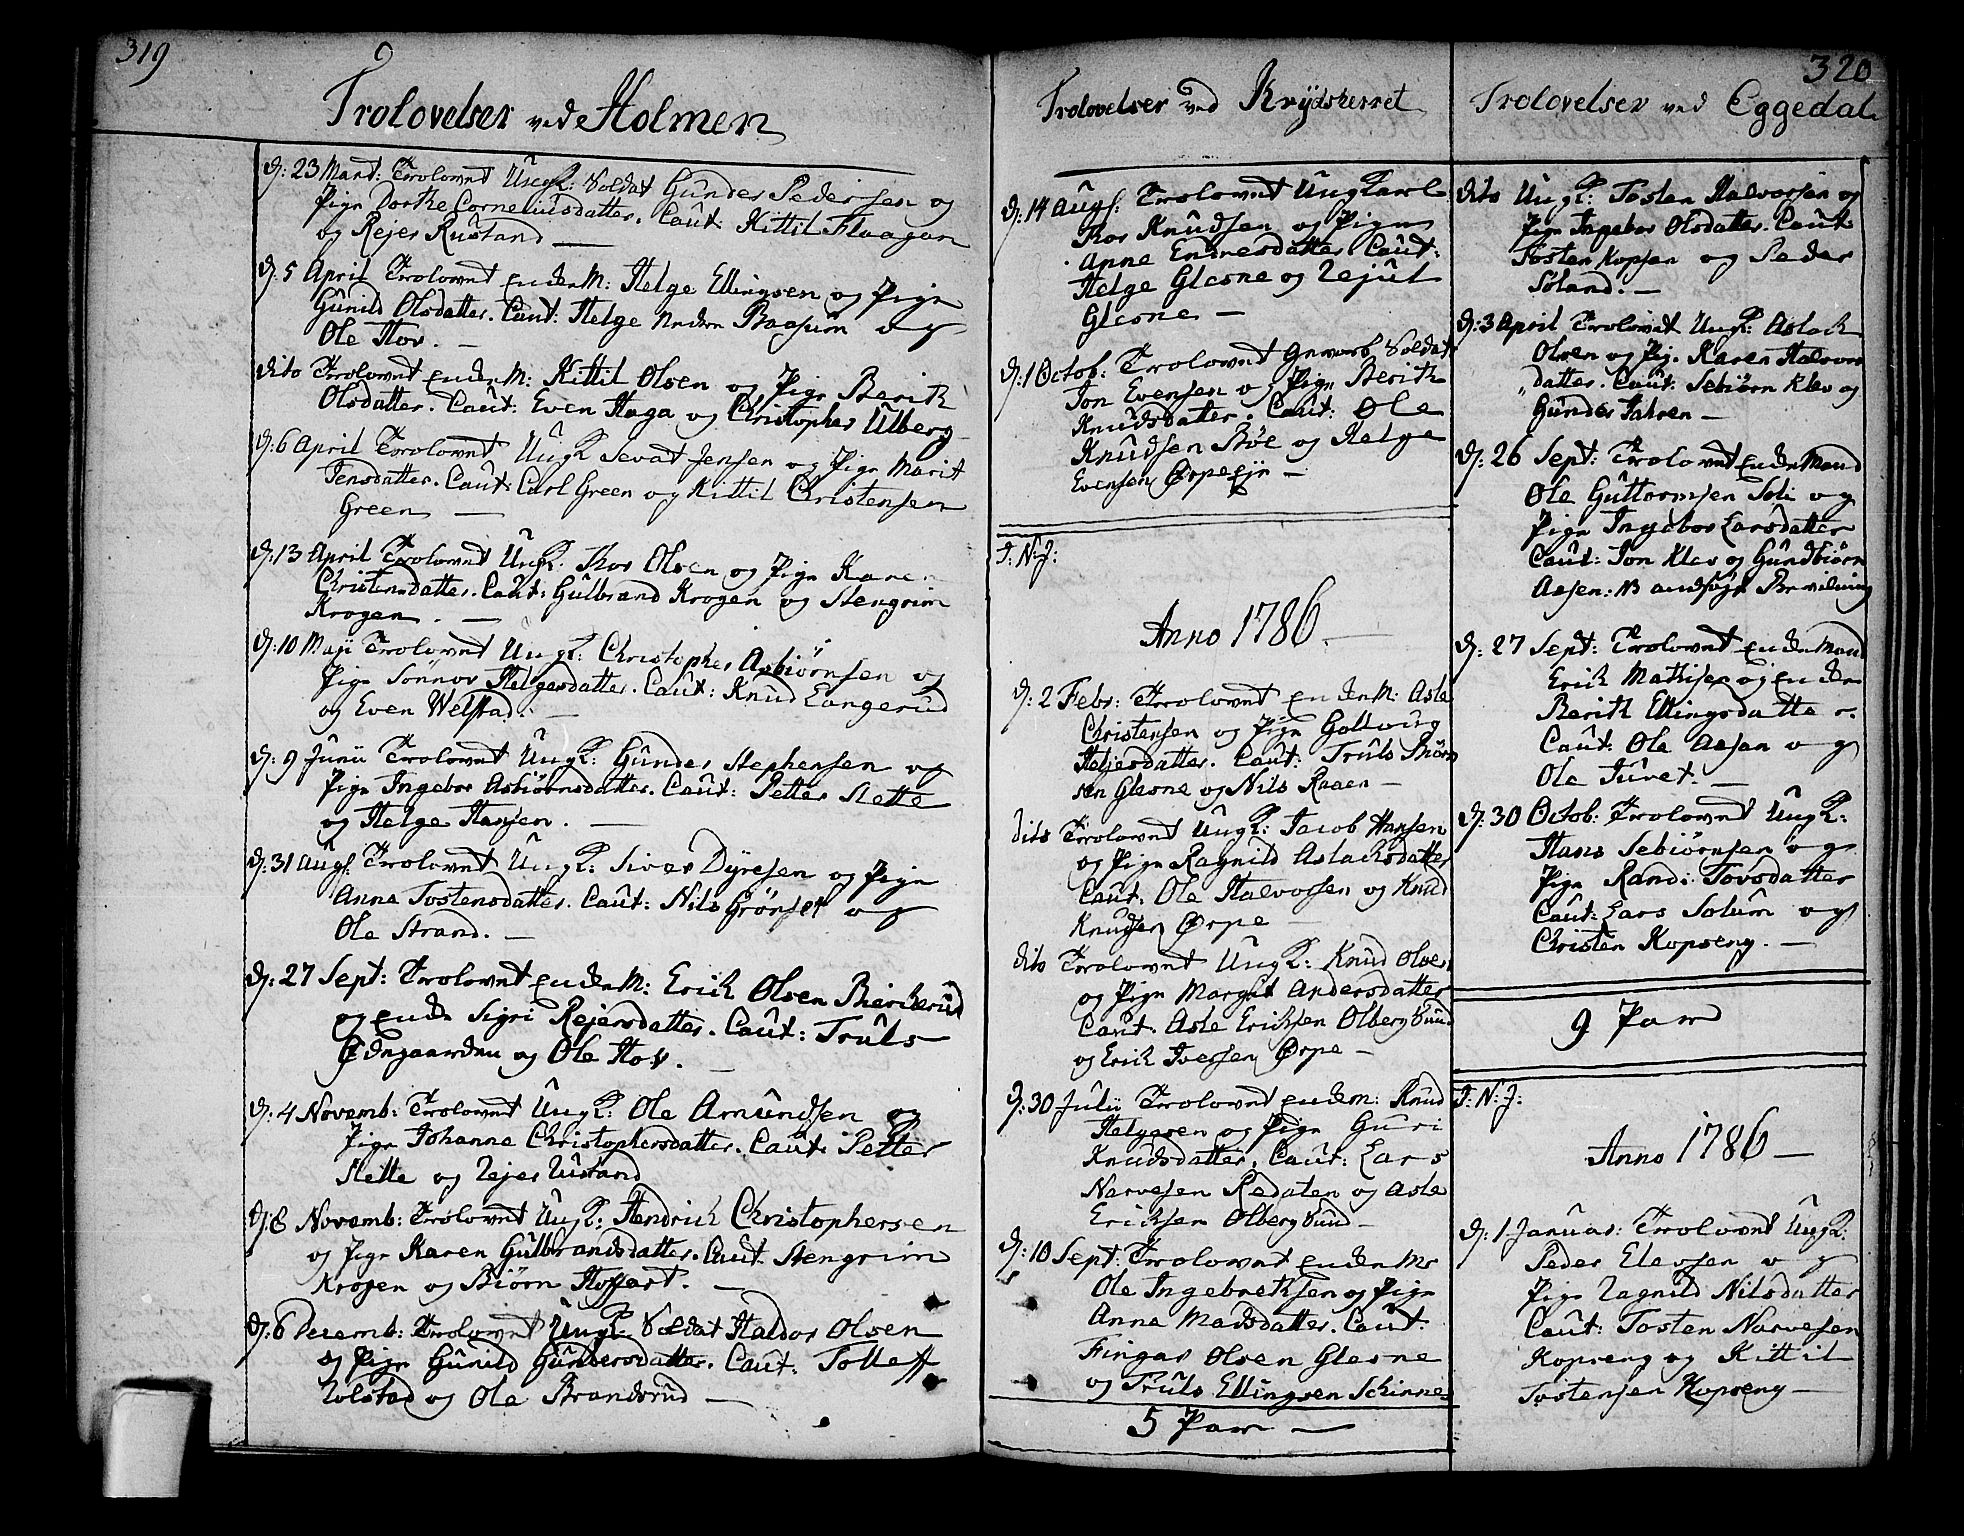 319
Trolovelser ved Holmen
d: 23 Mart: Trolovet Ungk: Soldat Gunder Pedersen og
Pige Dorthe Corneliusdatter. Caut: Kittil Flaagan
og Rejer Rustand —
d: 5 April Trolovet Enckem: Helge Ellingsen og Pige
Gunild Olsdatter. Caut: Helge Nedre Baasum og
Ole Hov. —
dito Trolovet Enckem: Kittil Olsen og Pige Berith
Olsdatter. Caut: Even Haga og Christopher Ulberg
d: 6 April Trolovet Ungk Sevat Jensen og Pige Marit
Jensdatter. Caut: Carl Green og Kittil Christensen
Green —
d: 13 April Trolovet Ungk: Thor Olsen og Pige Karen
Christensdatter. Caut: Gulbrand Krogen og Stengrim
Krogen. —
d: 10 Maji Trolovet Ungk: Christopher Asbiørnsen og
Pige Sønnov Helgesdatter. Caut: Knud Langerud
og Even Welstad. —
d: 9 Junii Trolovet Ungk: Gunder Stephensen og
Pige Ingebor Asbiørnsdatter. Caut: Petter Slette
og Helge Hansen. —
d: 31 Augs: Trolovet Ungk: Siver Dyresen og Pige
Anne Tostensdatter. Caut: Nils Grønset og
Ole Strand. —
d: 27 Sept: Trolovet Enckem: Erick Olsen Bierkerud
og Encke Sigri Rejersdatter. Caut: Truls
Ødegaarden og Ole Hov. —
d: 4 Novemb: Trolovet Ungk: Ole Amundsen og
Pige Johanne Christophersdatter. Caut: Petter
Slette og Rejer Rustand
d: 8 Novemb: Trolovet Ungk: Hendrich Christophersen
og Pige Karen Gulbrandsdatter. Caut Stengrim
Krogen og Biørn Hoffart. —
d: 6 Decemb: Trolovet Ungk Soldat Haldor Olsen
og Pige Gunild Gundersdatter. Caut: Tolleff
Rolstad og Ole Brandsrud —
Trolovelser ved Krydsherret
d: 14 Augs: Trolovet Ungkarl
Thor Knudsen og Pige
Anne Endresdatter Caut:
Helge Glesne og Rejul
Glesne —
d: 1 Octob: Trolovet Gevorb Soldat
Jon Evensen og Pige Berith
Knudsdatter. Caut: Ole
Knudsen Bøe og Helge
Evensen Ørpe Eje —
I: N: J:
Anno 1786. —
d: 2 Febr: Trolovet Enckem: Asle
Christensen og Pige Gollaug
Helgesdatter. Caut: Truls Biørn
sen Glesne og Nils Raaen —
dito Trolovet Ungk: Jacob Hansen
og Pige Ragnild Aslachsdatter
Caut: Ole Halvorsen og Knud
Knudsen Ørpe —
dito Trolovet Ungk: Knud Olsen
og Pige Margit Andersdatter
Caut. Asle Ericksen Olbergsund
og Erick Iversen Ørpe —
d: 30 Julii Trolovet Enckem: Knud
Helgesen og Pige Guri
Knudsdatter. Caut: Lars
Narvesen Redaten og Asle
Ericksen Olbergsund —
d: 10 Sept: Trolovet Enckem
Ole Ingebrethsen og Pige
Anne Madsdatter. Caut:
Fingar Olsen Glesne
og Truls Ellingsen Skinnes
5 Par —
320
Trolovelser ved Eggedal
dito Ungk: Tosten Halvorsen og
Pige Ingebor Olsdatter. Caut:
Tosten Kopsen og Peder
Søland. —
d: 3 April Trolovet Ungk: Aslack
Olsen og Pig. Karen Halvors
datter. Caut: Sebiørn Klev og
Gunder Jahren —
d: 26 Sept: Trolovet Enckemand
Ole Guttormsen Soli og
Pige Ingebor Larsdatter
Caut: Jon Klev og Gundbiørn
Aasen: NB andsøge Bevilning
d: 27 Sept: Trolovet Enckemand
Erik Mathisen og Encke
Berith Ellingsdatter.
Caut: Ole Aasen og
Ole Juvet. —
d: 30 Octob: Trolovet Ungk:
Hans Sebiørnsen og
Pige Randi Tovsdatter
Caut: Lars Solum og
Christen Kopseng. —
9 Par
I: N: J:
Anno 1786 —
d: 1 Januar: Trolovet Ungk:
Peder Elevsen og
Pige Ragnild Nilsdatter
Caut: Tosten Narvesen
Kopseng og Kittil
Tostensen Kopseng —